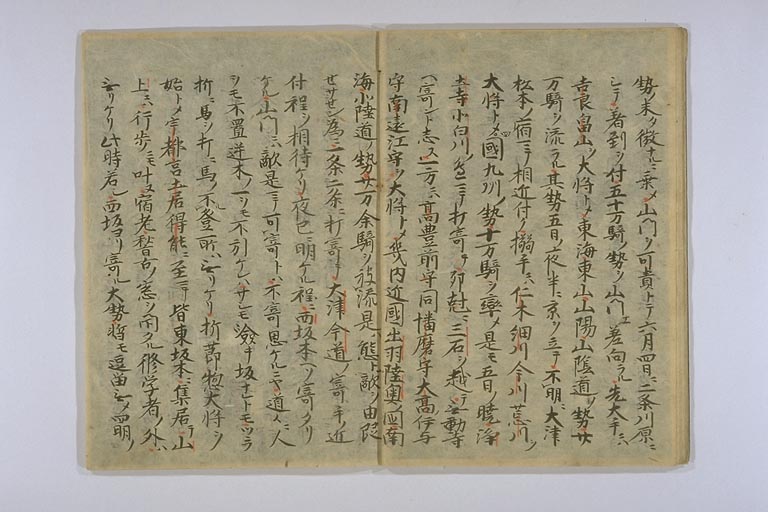 勢未タ微ナルニ乗メ山門ヲ可責トテ六月四日ニ二条川原ニ
シテ着到ヲ付五十万騎ノ勢ヲ山門エ差向ラル先大手ニハ
吉良畠山ヲ大将トメ東海東山山陽山陰道ノ勢廿
万騎ヲ流ラル其勢五日ノ夜半ニ京ヲ立テ不明ニ大津
松本ノ宿ニテ相近付ク搦手ニハ仁木細川今川荒川ヲ
大将トメ四國九州ノ勢十万騎ヲ率メ是モ五日ノ暁浄
土寺小白川ノ色ニテ打寄テ卯尅ニ三石ヲ越テ不動等
ヘ寄ント志ス一方ニハ高豊前守同播磨守大高伊与
守南遠江守ヲ大将トメ幾内近國出羽陸奥ノ両南
海北陸道ノ勢廿万余騎ヲ被流是ハ態ト敵ノ由段
セサセン為ニ二条二条ニ打寄テ大津今道ノ寄手ニ近
付程ヲ相待ケリ夜已ニ明ケル程ニ西坂本ヘソ寄タリ
ケル山門ニハ敵是ニテ可寄トハ不寄思ケルニヤ道々ニ人
ヲモ不置逆木ノ一ヲモ不引ケレハサレモ澰キ坂ナレトモツラ
折ニ馬ヲ打ニ馬ノ不登所ハ无リケリ折節惣大将ヲ
始トメ宇都宮土居得能ニ至ニテ皆東坂本ニ集居テ山
上ニハ行歩ニモ叶ヌ宿老稽古ノ窓ヲ閇タル修学者ノ外ハ
无リケリ此時若シ西坂ヨリ寄ル大勢将モ逗留セテ四明ノ